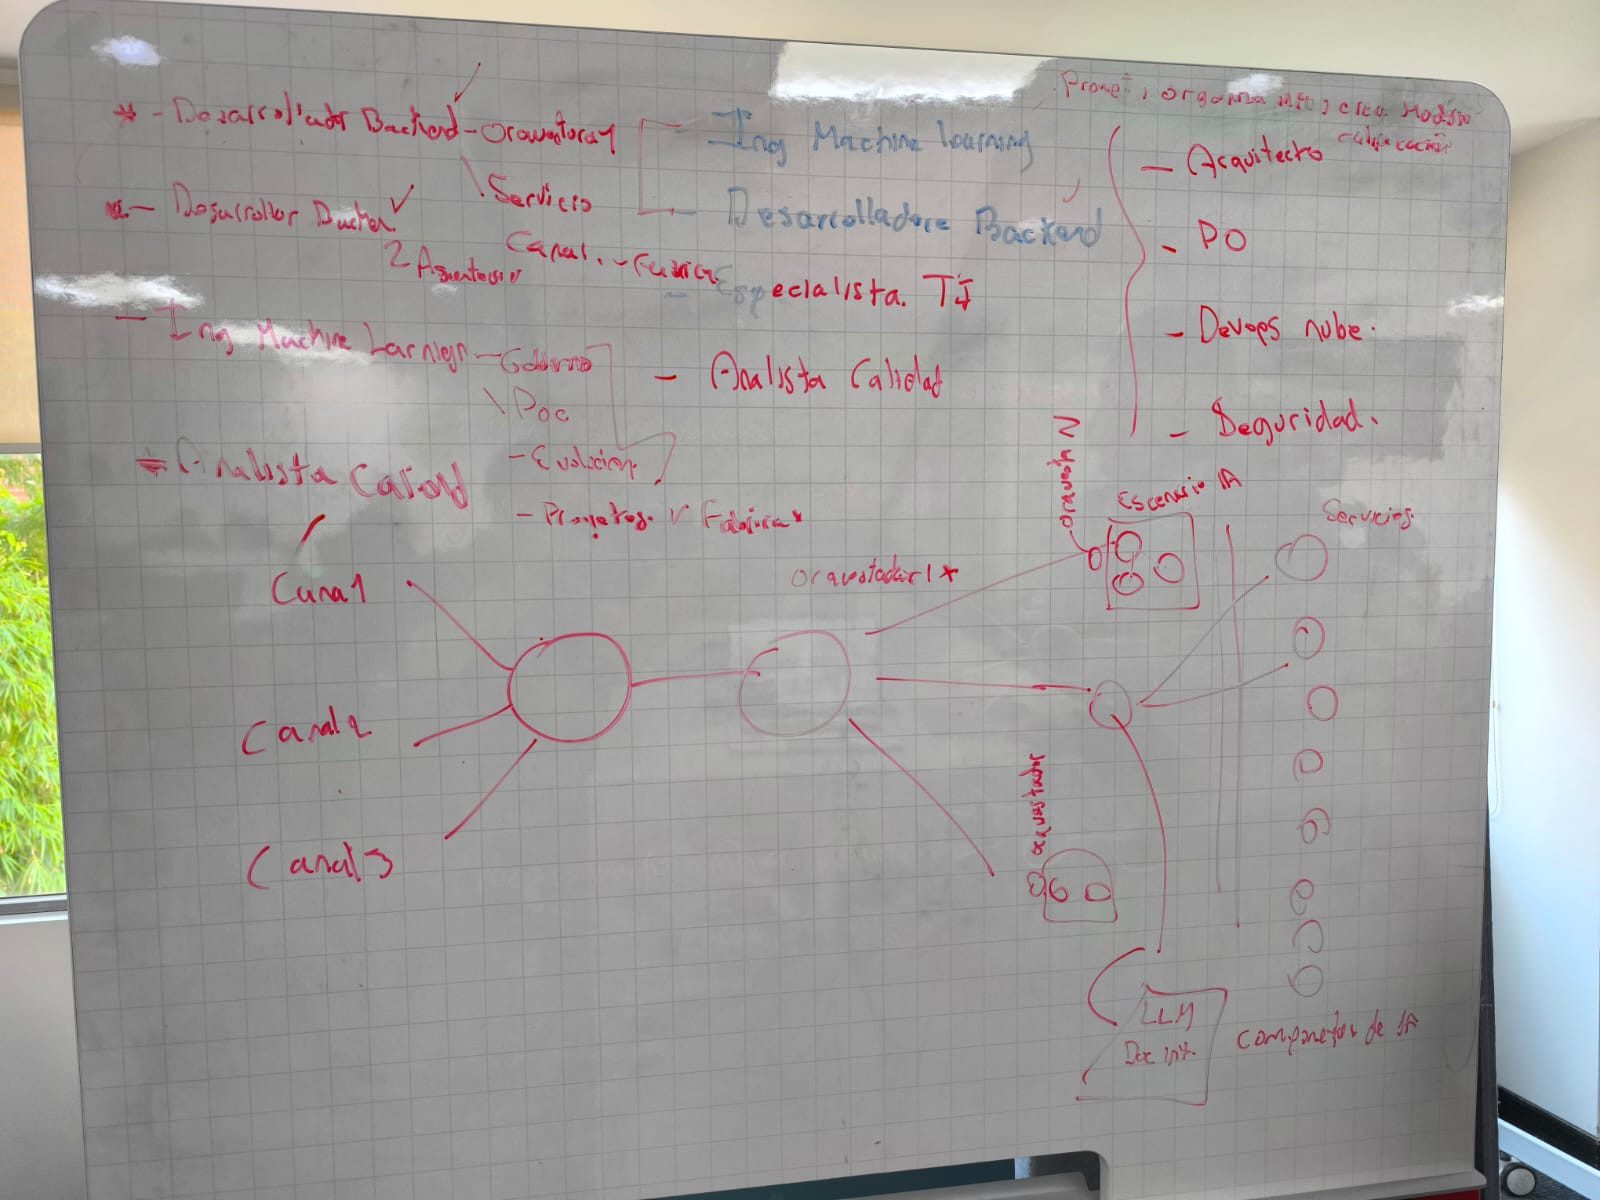 - Desarrollador Backend - Oraquestora 1
Servicio
Canal. - Fabrica
- Desarrollor Backen
2 Asentacion
- Ing Machine Larnign - Gobierno
Poc
- Evolución
- Proyetos. Fabrica *
= Analista Calidad
- Ing Machine Learning
- Desarrolladore Backend
- Especialista. TI
- Analista Calidad
organiza
calificación
- Arquitecto
- PO
- Devops nube.
- Seguridad.
Canal 1
Canal 2
Canal 3
Oraquestador 1 *
Escenario IA
Servicios.
orquestador
LLM
Doc int.
Componetes de IA